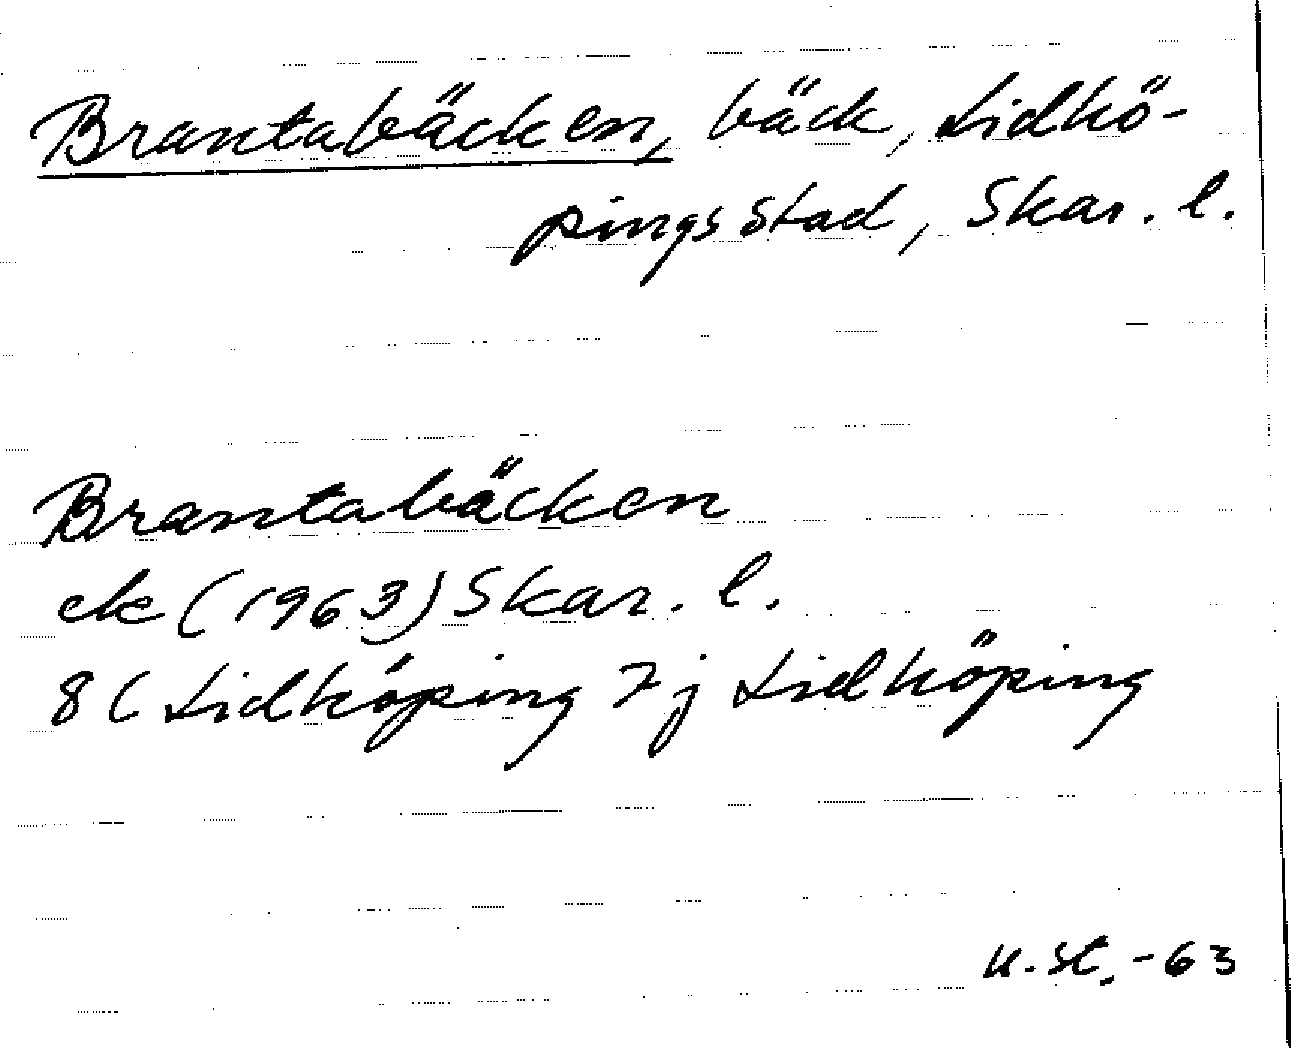 Brantabäcken, bäck, Lidkö-
pings stad, Skar. l.
Brantabäcken
ek (1963) Skar. l.
8C Lidköping 7j Lidköping
u. st. -63